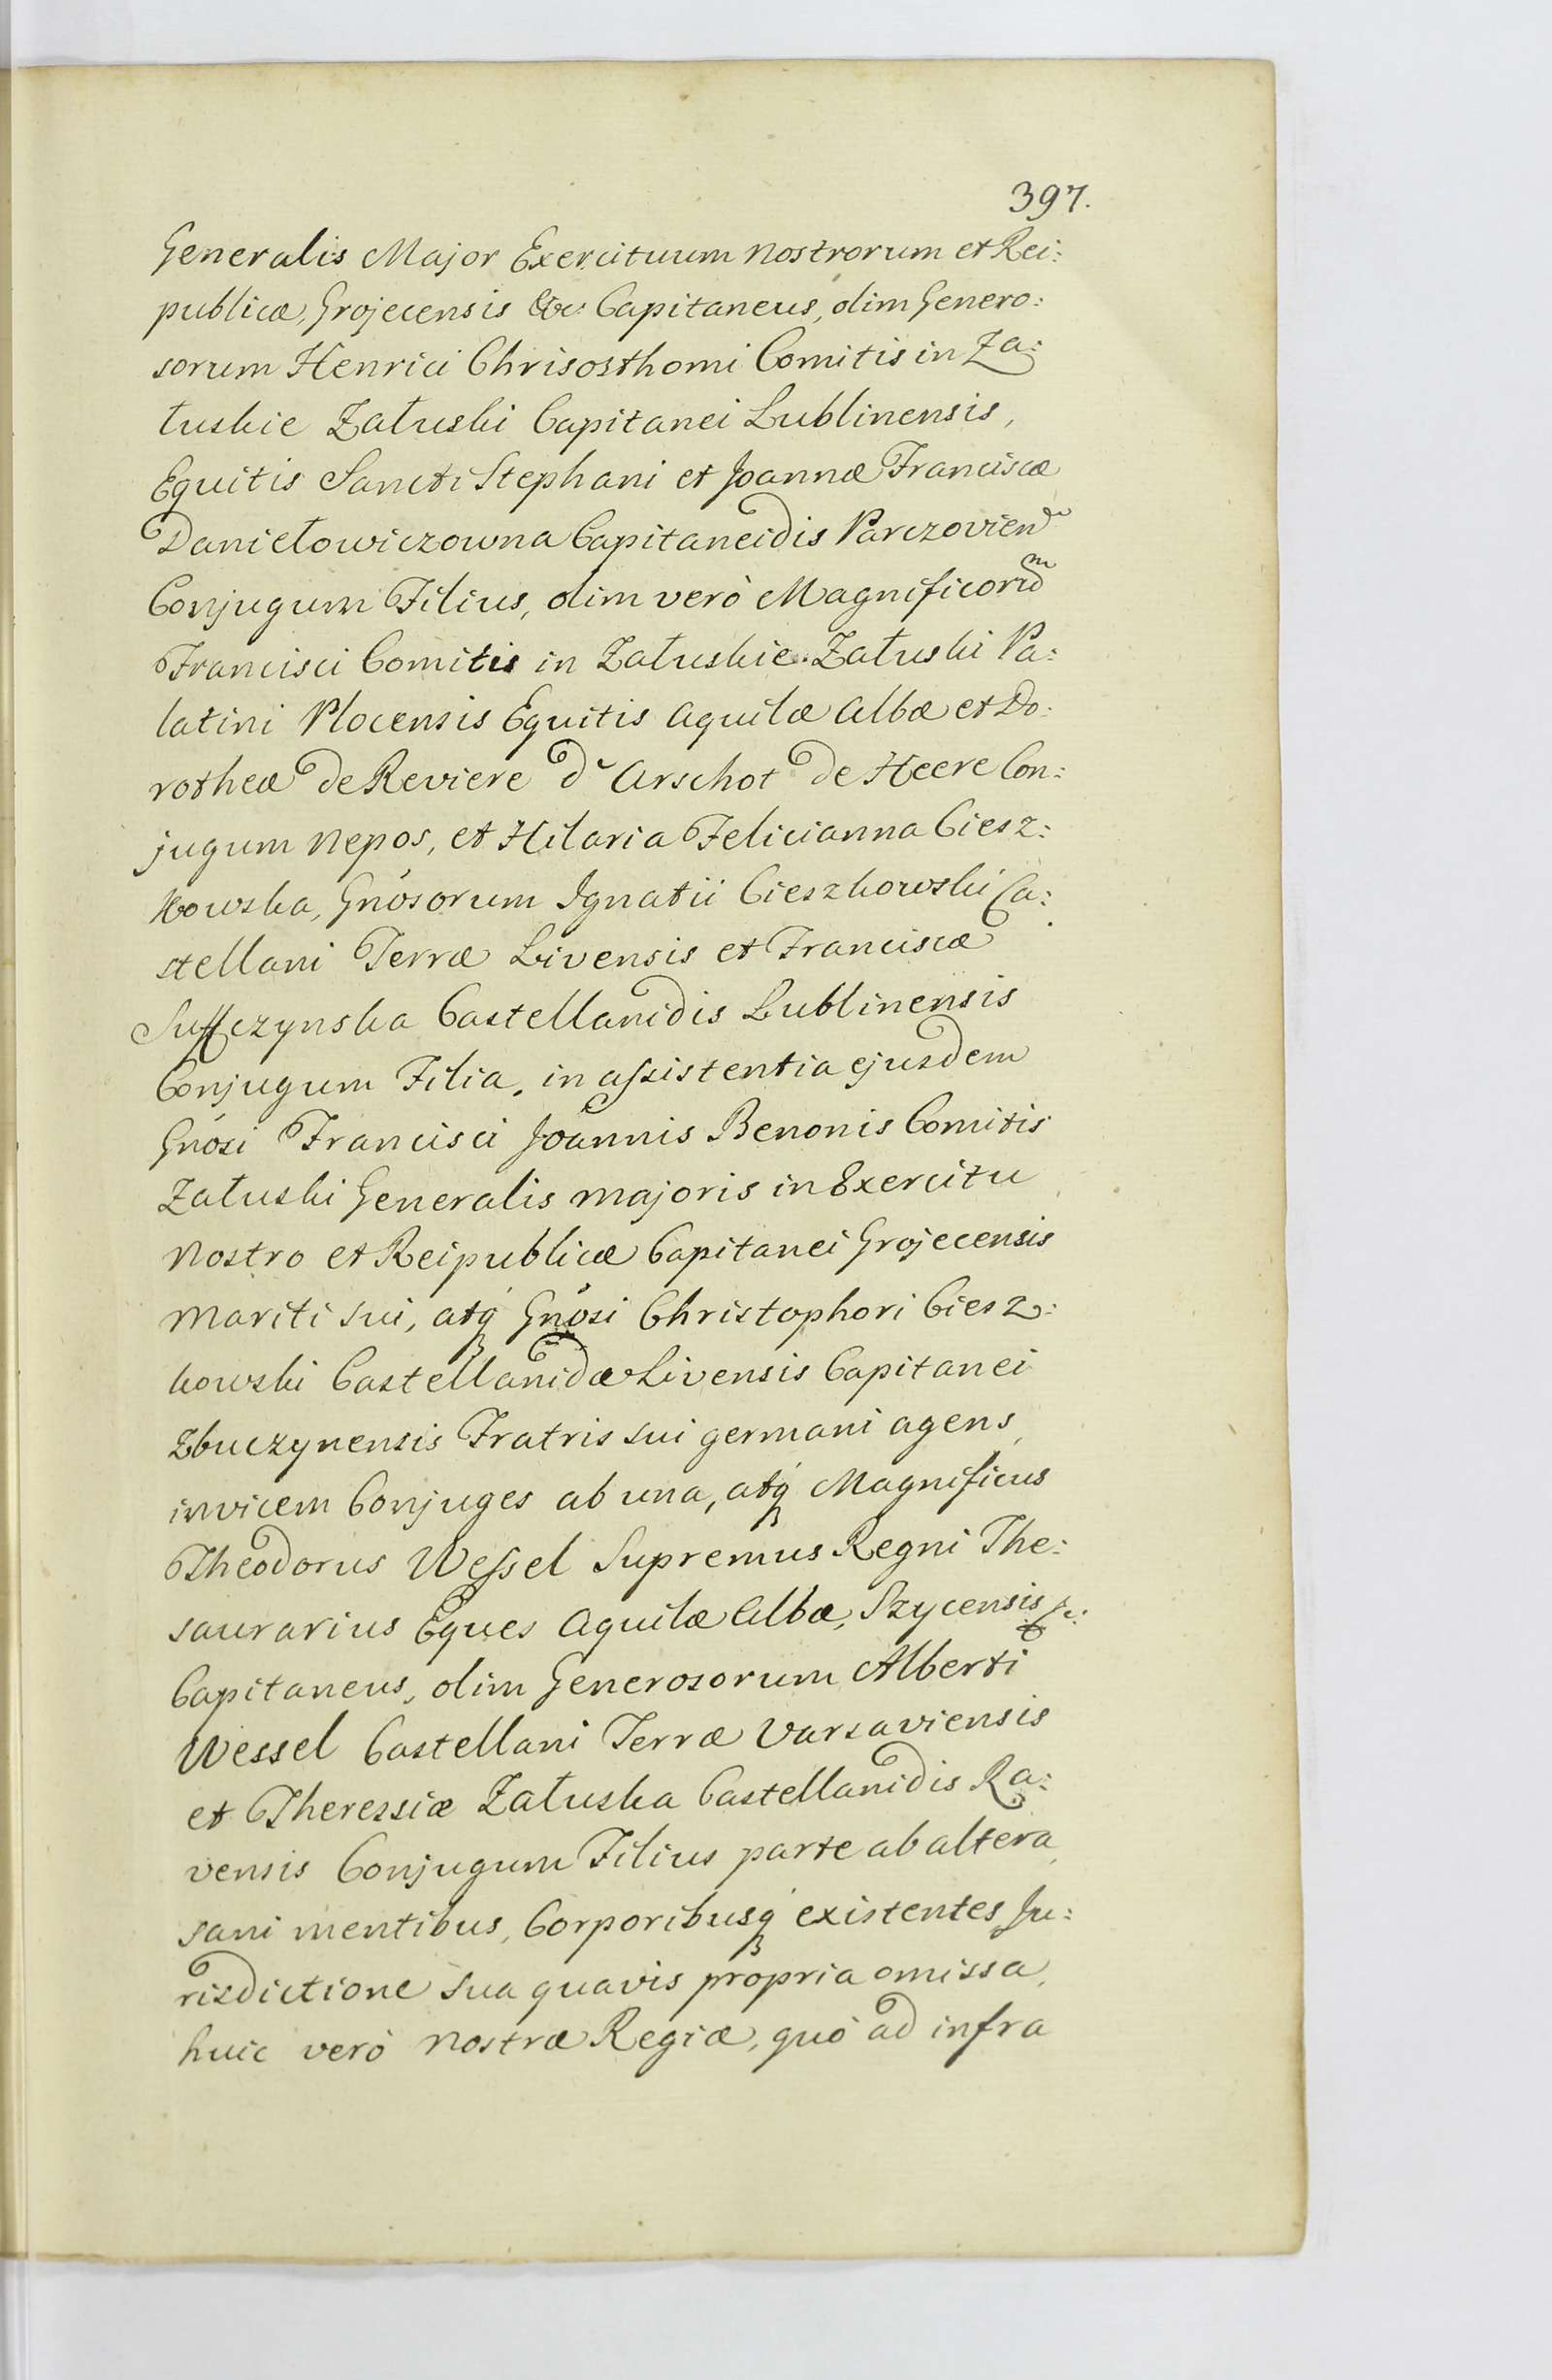 397.
Generalis Major Exercituum Nostrorum et Rei:
publicæ, Grojecensis &c Capitaneus, olim Genero:
sorum Henrici Chrisosthomi Comitis in Za:
łuskie Załuski Capitanei Lublinensis,
Equitis Sancti Stephani et Joannæ Franciscæ
Daniełowiczowna Capitaneidis Parczovien
Conjugum Filius, olim verò Magnificorum
Francisci Comitis in Załuskie Załuski Pa:
latini Plocensis Equitis Aquilæ Albæ et Do:
rotheæ de Reviere d' Arschot de Heere Con:
jugum Nepos, et Hilaria Felicianna Ciesz:
kowska, Gnosorum Ignatii Cieszkowski Ca:
stellani Terræ Livensis et Franciscæ
Suffczynska Castellanidis Lublinensis
Conjugum Filia, in assistentia ejusdem
Gnosi Francisci Joannis Benonis Comitis
Załuski Generalis majoris in Exercitu
Nostro et Reipublicæ Capitanei Grojecensis
Mariti sui, atq Gnosi Christophori Ciesz:
kowski Castellanidæ Livensis Capitanei
Zbuczynensis Fratris sui germani agens,
invicem Conjuges ab una, atq Magnificus
Theodorus Wessel Supremus Regni The:
saurarius Eques Aquilæ Albæ, Szycensis &c:
Capitaneus, olim Generosorum Alberti
Wessel Castellani Terræ Varsaviensis
et Theressiæ Załuska Castellanidis Ra:
vensis Conjugum Filius parte ab altera,
sani mentibus, Corporibusq existentes Ju:
risdictione sua quavis propria omissa,
huic verò Nostræ Regiæ, quò ad infra